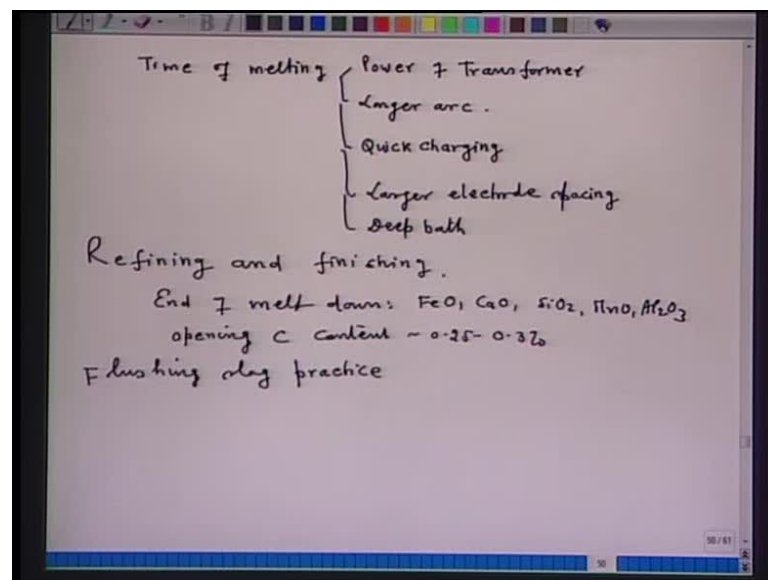 Time of melting Power of Transformer
Longer arc.
Quick charging
Larger electrode spacing
Deep bath
Refining and finishing.
End of melt down: FeO, CaO, SiO2, MnO, Al2O3
opening C content ~ 0.25-0.3%
Flushing slag practice
50/61
50